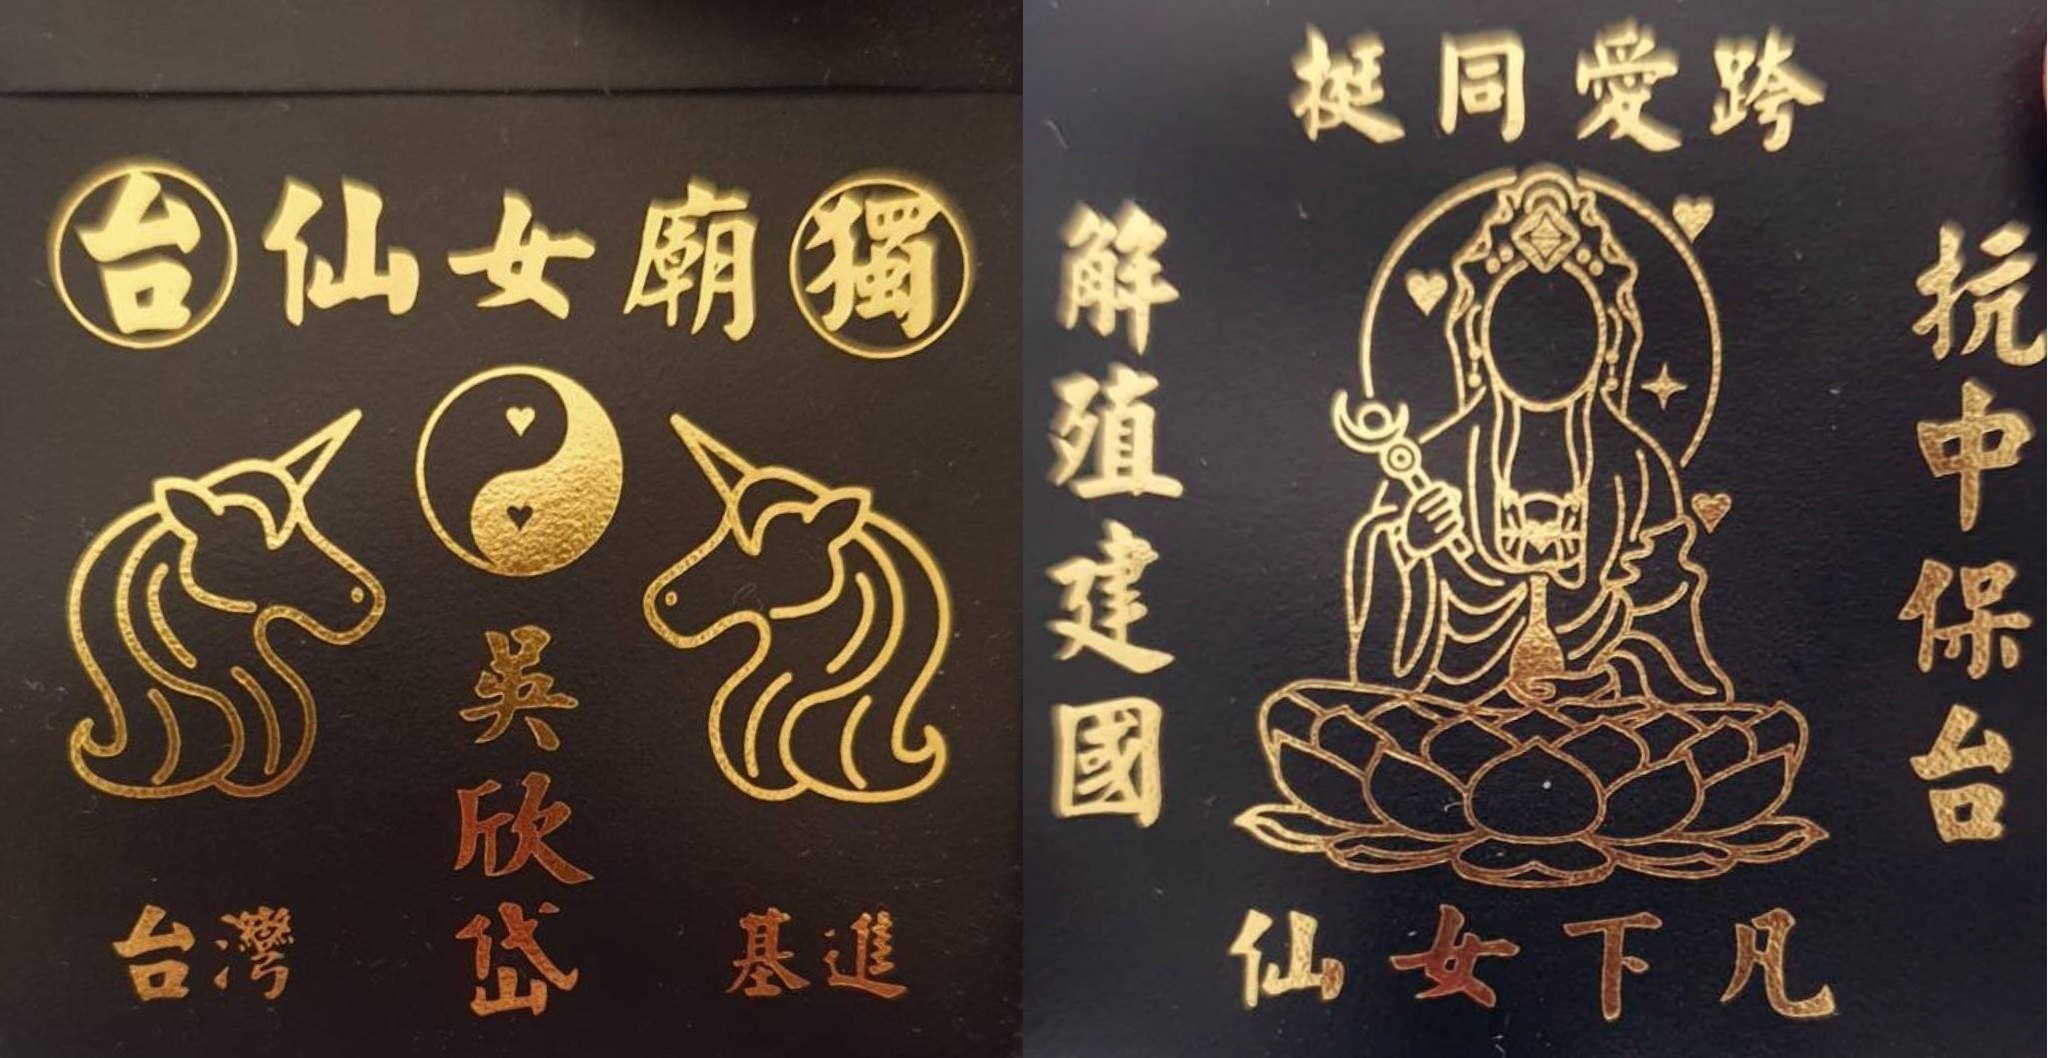 台仙女廟獨
吳欣岱
台灣
基進
挺同愛跨
解殖建國
抗中保台
仙女下凡